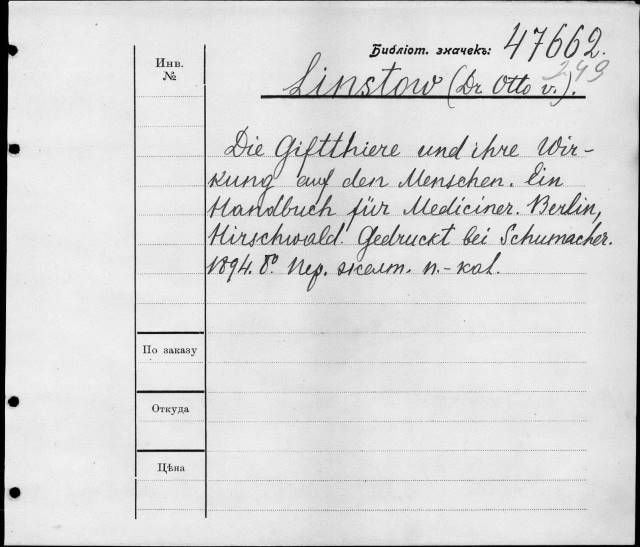 Библіот. значекъ: 47662.
249
Инв.
№
Linstow (Dr. Otto v.).
Die Giftthiere und ihre Wir-
kung auf den Menschen. Ein
Handbuch für Mediciner. Berlin,
Hirschwald. Gedruckt bei Schumacher.
1894. 8º. Пер. желт. п.-кол.
По заказу
Откуда
Цѣна